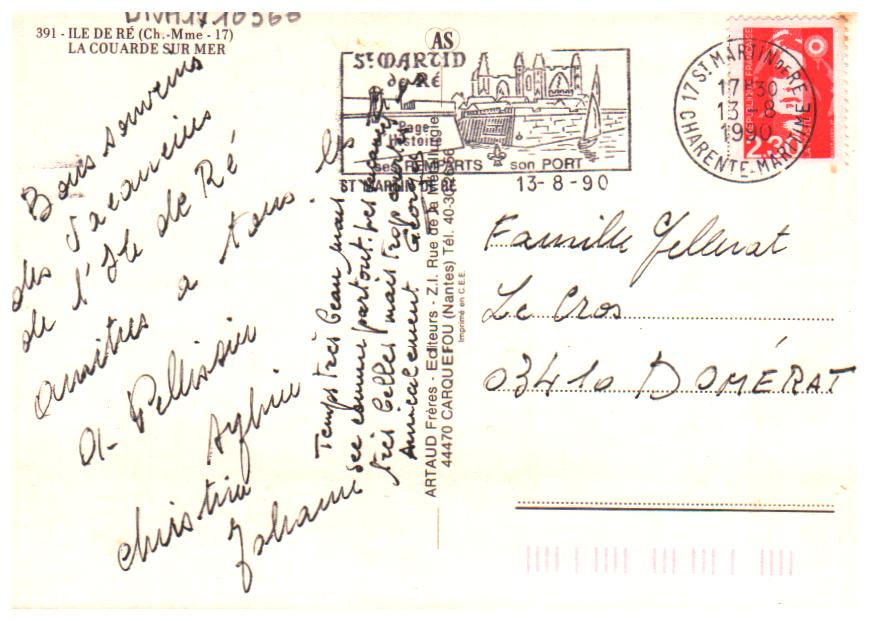 391 - ILE DE RÉ (Ch.-Mme - 17)
LA COUARDE SUR MER
AS
St MARTIN
de RÉ
Page
Histoire
ses REMPARTS son PORT
ST MARTIN DE RE 13-8-90
17 ST MARTIN DE RE
17H30
13-8
1990
CHARENTE-MARITIME
RÉPUBLIQUE FRANÇAISE
2,30
Bons souvenirs
des vacanciers
de l'Ile de Ré
amitiés a tous les
A. Pellissier
christine
Johann
Temps très beau mais
sec comme partout. Les vacances
très belles mais trop courtes
Amicalement Georges
ARTAUD Frères - Editeurs - Z.I. Rue de la Métallurgie
44470 CARQUEFOU (Nantes) Tél. 40-30
Imprimé en C.E.E.
Famille Jellerat
Le Cros
03410 DOMÉRAT